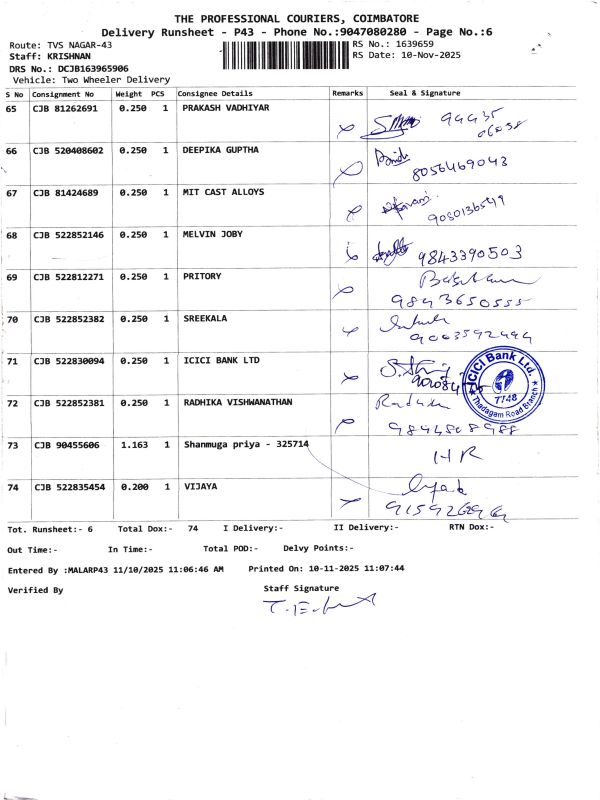 THE PROFESSIONAL COURIERS, COIMBATORE
Delivery Runsheet - P43 - Phone No.:9047080280 - Page No.:6
Route: TVS NAGAR-43 RS No.: 1639659
Staff: KRISHNAN RS Date: 10-Nov-2025
DRS No.: DCJB163965906
Vehicle: Two Wheeler Delivery
S No Consignment No Weight PCS Consignee Details Remarks Seal & Signature
65 CJB 81262691 0.250 1 PRAKASH VADHIYAR
66 CJB 520408602 0.250 1 DEEPIKA GUPTHA
8056469043
67 CJB 81424689 0.250 1 MIT CAST ALLOYS
68 CJB 522852146 0.250 1 MELVIN JOBY
9843390503
69 CJB 522812271 0.250 1 PRITORY
9843650555
70 CJB 522852382 0.250 1 SREEKALA
71 CJB 522830094 0.250 1 ICICI BANK LTD
ICICI Bank Ltd.
7748
Thadagam Road Branch
72 CJB 522852381 0.250 1 RADHIKA VISHWANATHAN
73 CJB 90455606 1.163 1 Shanmuga priya - 325714
HR
74 CJB 522835454 0.200 1 VIJAYA
Tot. Runsheet:- 6 Total Dox:- 74 I Delivery:- II Delivery:- RTN Dox:-
Out Time:- In Time:- Total POD:- Delvy Points:-
Entered By :MALARP43 11/10/2025 11:06:46 AM Printed On: 10-11-2025 11:07:44
Verified By Staff Signature